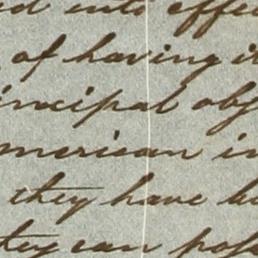 d into effe
of having i
incipal obj
merican in
they have b
they can poss